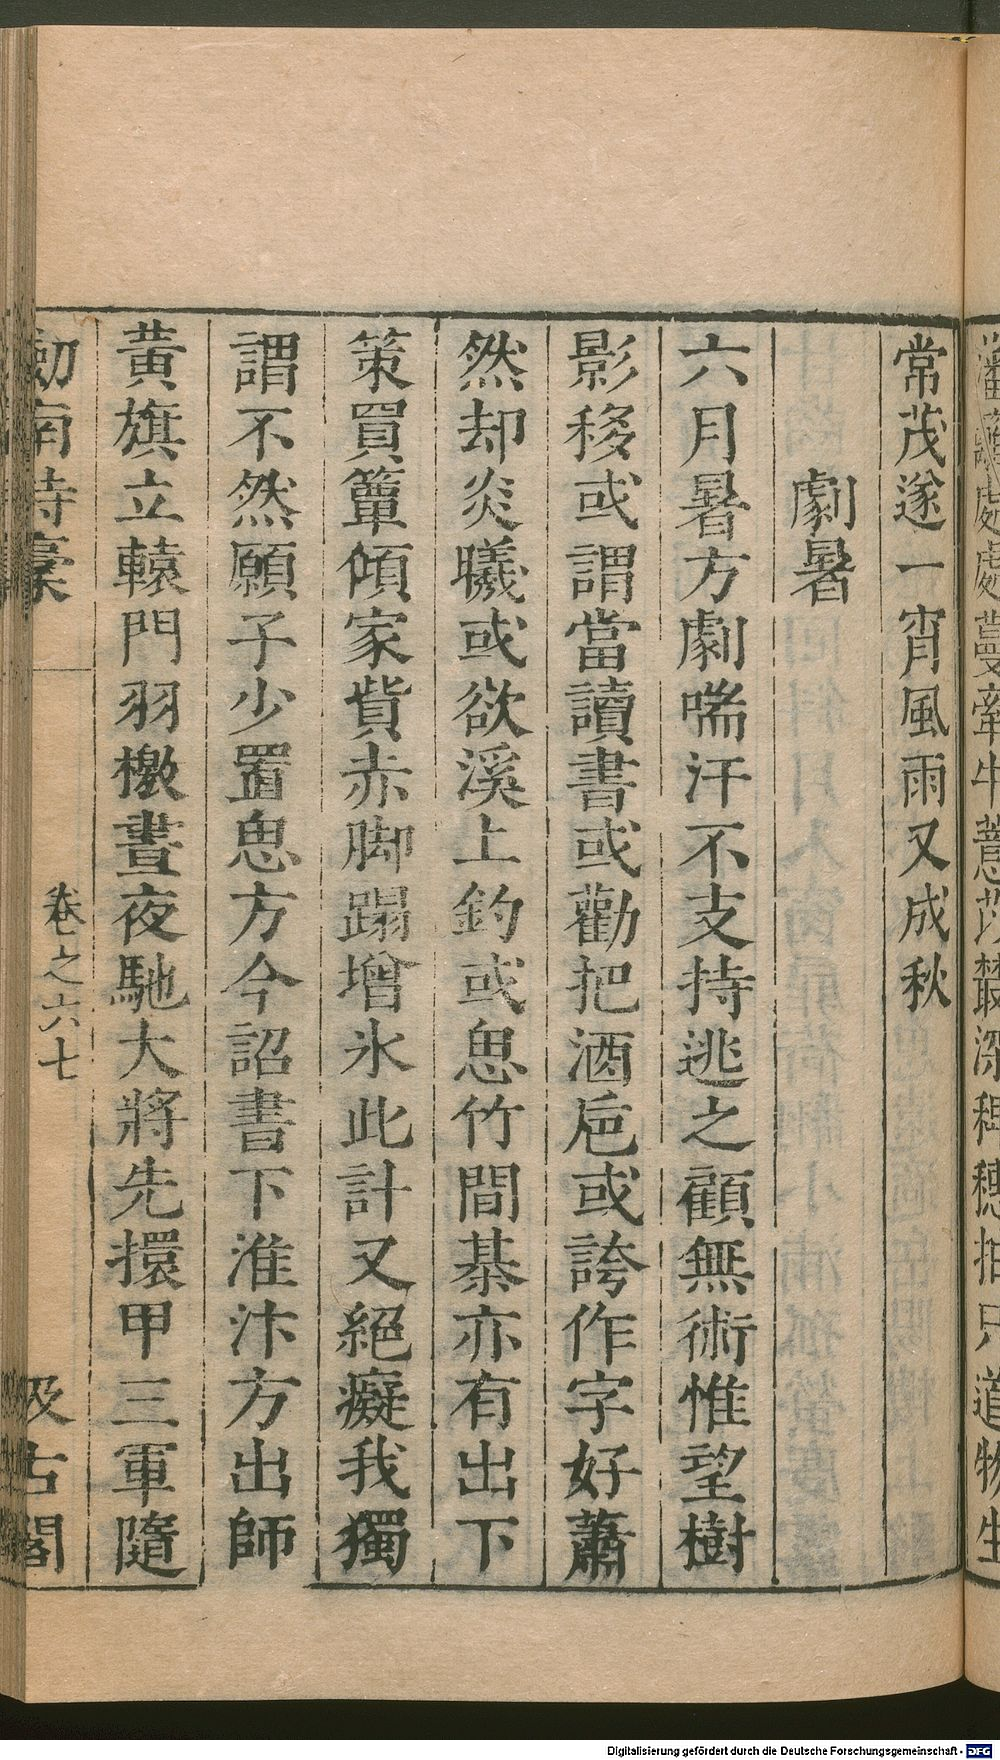 常茂遂一宵風雨又成秋
劇暑
六月暑方劇喘汗不支持逃之顧無術惟望樹
影移或謂當讀書或勸把酒巵或誇作字好蕭
然却炎曦或欲溪上釣或思竹間棊亦有出下
策買簟傾家貲赤脚蹋增氷此計又絕癡我獨
謂不然願子少置思方今詔書下淮汴方出師
黃旗立轅門羽檄晝夜馳大將先擐甲三軍隨
劒南詩稾
卷之六七
汲古閣
Digitalisierung gefördert durch die Deutsche Forschungsgemeinschaft - DFG